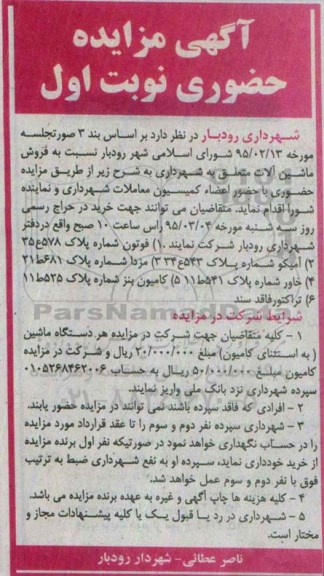 آگهی مزایده
حضوری نوبت اول
شهرداری رودبار در نظر دارد بر اساس بند ۳ صورتجلسه
مورخه ۹۵/۰۲/۱۳ شورای اسلامی شهر رودبار نسبت به فروش
ماشین آلات متعلق به شهرداری به شرح زیر از طریق مزایده
حضوری با حضور اعضاء کمیسیون معاملات شهرداری و نماینده
شورا اقدام نماید. متقاضیان می توانند جهت خرید در حراج رسمی
روز سه شنبه مورخه ۹۵/۰۳/۰۴ راس ساعت ۱۰ صبح واقع دردفتر
شهرداری رودبار شرکت نمایند .۱) فوتون شماره پلاک ۵۷۸ع۳۵
۲) آمیکو شماره پلاک ۵۴۳ع۳۴ ۳) مزدا شماره پلاک ۶۸۱ط۲۱
۴) خاور شماره پلاک ۵۴۱ط۱۱ ۵) کامیون بنز شماره پلاک ۵۲۵ط۱۱
۶) تراکتورفاقد سند
شرایط شرکت در مزایده
۱ - کلیه متقاضیان جهت شرکت در مزایده هر دستگاه ماشین
( به استثنای کامیون) مبلغ ۲۰/۰۰۰/۰۰۰ ریال و شرکت در مزایده
کامیون مبلغ ۵۰/۰۰۰/۰۰۰ ریال به حساب ۰۱۰۵۲۶۸۴۶۲۰۰۶
سپرده شهرداری نزد بانک ملی واریز نمایند.
۲ - افرادی که فاقد سپرده باشند نمی توانند در مزایده حضور یابند.
۳ - شهرداری سپرده نفر دوم و سوم را تا عقد قرارداد مورد مزایده
را در حساب نگهداری خواهد نمود در صورتیکه نفر اول برنده مزایده
از خرید خودداری نماید، سپرده او به نفع شهرداری ضبط به ترتیب
فوق با نفر دوم و سوم عمل خواهد شد.
۴ - کلیه هزینه ها چاپ آگهی و غیره به عهده برنده مزایده می باشد.
۵ - شهرداری در رد یا قبول یک یا کلیه پیشنهادات مجاز و
مختار است.
ناصر عطائی- شهردار رودبار